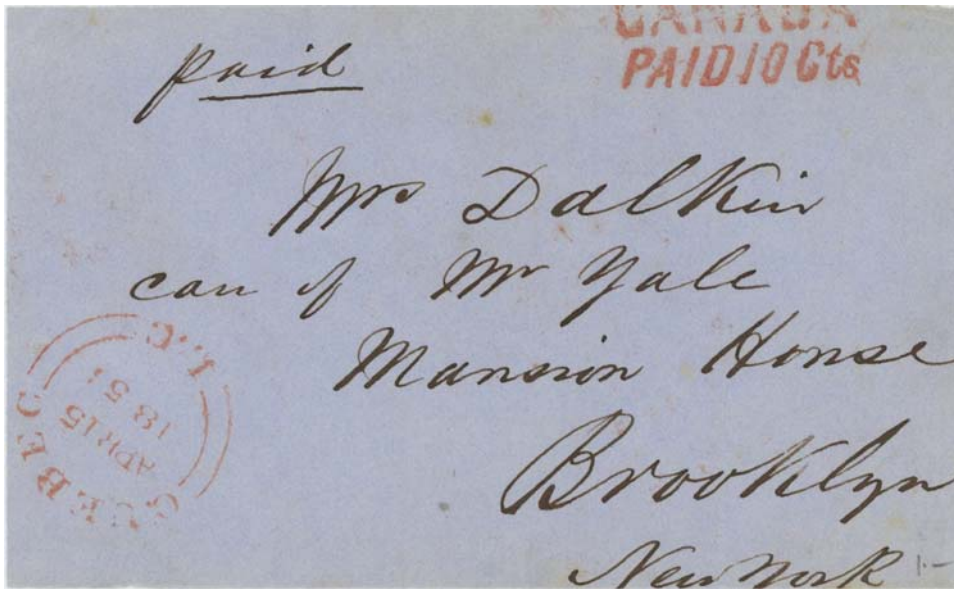 CANADA
PAID 10 Cts
paid
Mrs Dalkin
care of Mr Yale
Mansion House
Brooklyn
New York
QUEBEC L.C.
APR 15
185